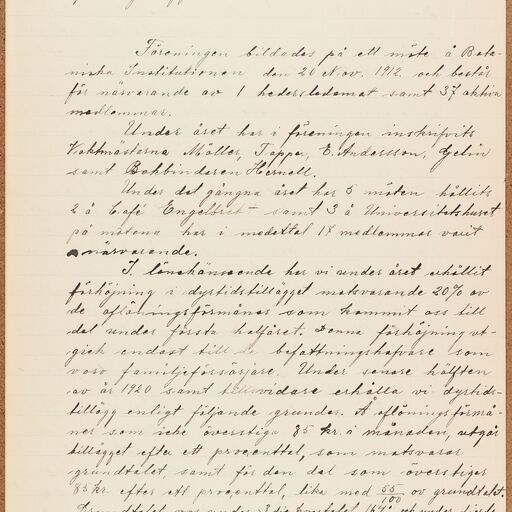 Föreningen bildades på ett möte å Bota-
niska Institutionen den 20 Nov. 1912. och består
för närvarande av 1 hedersledamot samt 37 aktiva
medlemmar.
Under året har i föreningen inskrifvits
Vaktmästarna Möller, Tappe, E. Andersson, Gelin
samt Bokbinderen Hernell.
Under det gångna året har 5 möten hållits
2 å Café Engelbrekt samt 3 å Universitetshuset
på mötena har i medeltal 17 medlemmar varit
närvarande.
I lönehänseende har vi under året erhållit
förhöjning i dyrtidstillägget motsvarande 20% av
de aflöningsförmåner som kommit oss till
del under första halfåret. Denna förhöjning ut-
gick endast till de befattningshafvare som
voro familjeförsörjare. Under senare hälften
av år 1920 samt tillsvidare erhålla vi dyrtids-
tillägg enligt följande grunder. Å aflöningsförmå-
ner som icke överstiga 85 kr. i månaden, utgår
tillägget efter ett procenttal, som motsvarar
grundtalet, samt för den del som överstiger
85 kr. efter ett procenttal, lika med 55/100 av grundtalet.